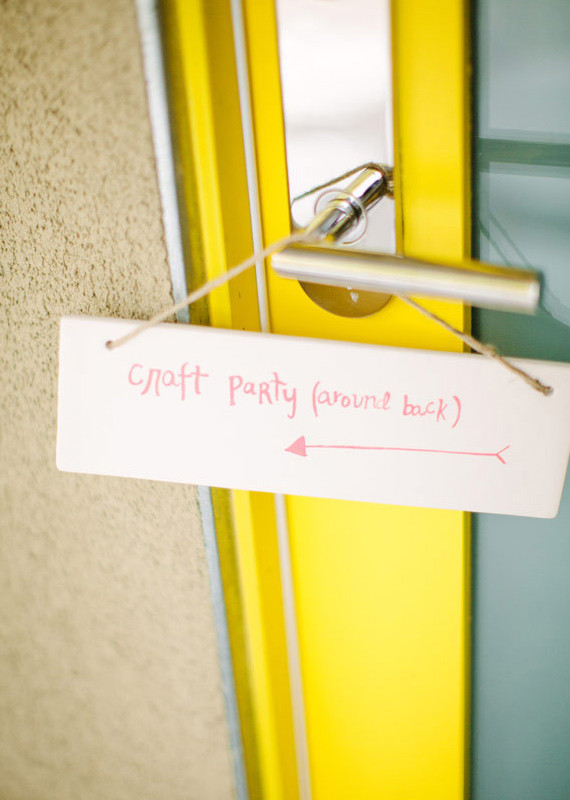 craft party (around back)